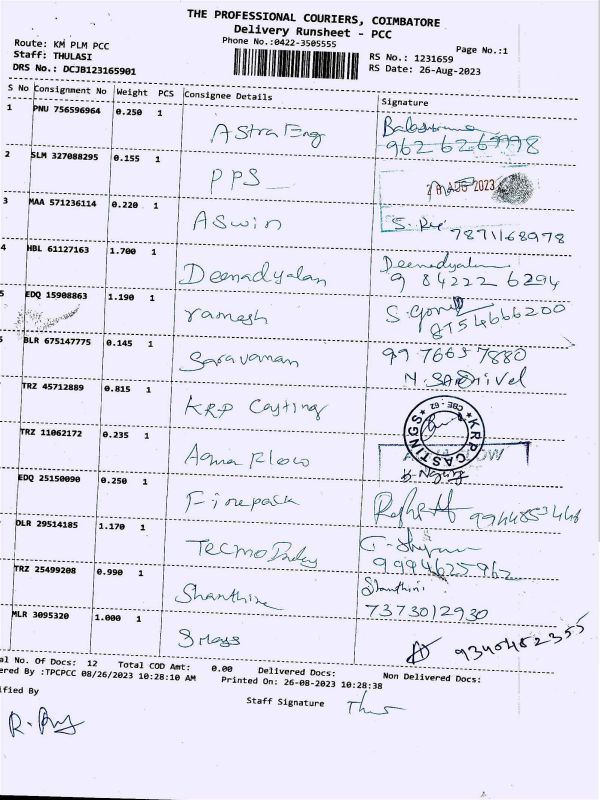 THE PROFESSIONAL COURIERS, COIMBATORE
Delivery Runsheet - PCC
Phone No.:0422-3505555
Page No.:1
Route: KM PLM PCC
Staff: THULASI
DRS No.: DCJB123165901
RS No.: 1231659
RS Date: 26-Aug-2023
S No Consignment No Weight PCS Consignee Details Signature
1 PNU 756596964 0.250 1 Astra Eng
9626267998
2 SLM 327088295 0.155 1 PPS
AUG 2023
3 MAA 571236114 0.220 1 ASwin
7871168978
4 HBL 61127163 1.700 1 Deenadyalan Deenadyalan
9 84222 6294
5 EDQ 15908863 1.190 1 ramesh
8754666200
BLR 675147775 0.145 1 Saravanan 99 76657880
TRZ 45712889 0.815 1 KRP Casting
KRP CASTINGS CBE - 62
TRZ 11062172 0.235 1 Aqua Flow
EDQ 25150090 0.250 1 Firepack
DLR 29514185 1.170 1
9994625962
TRZ 25499208 0.990 1 Shanthini
7373012930
MLR 3095320 1.000 1
9340482355
al No. Of Docs: 12 Total COD Amt: 0.00 Delivered Docs: Non Delivered Docs:
ered By :TPCPCC 08/26/2023 10:28:10 AM Printed On: 26-08-2023 10:28:38
ified By
Staff Signature